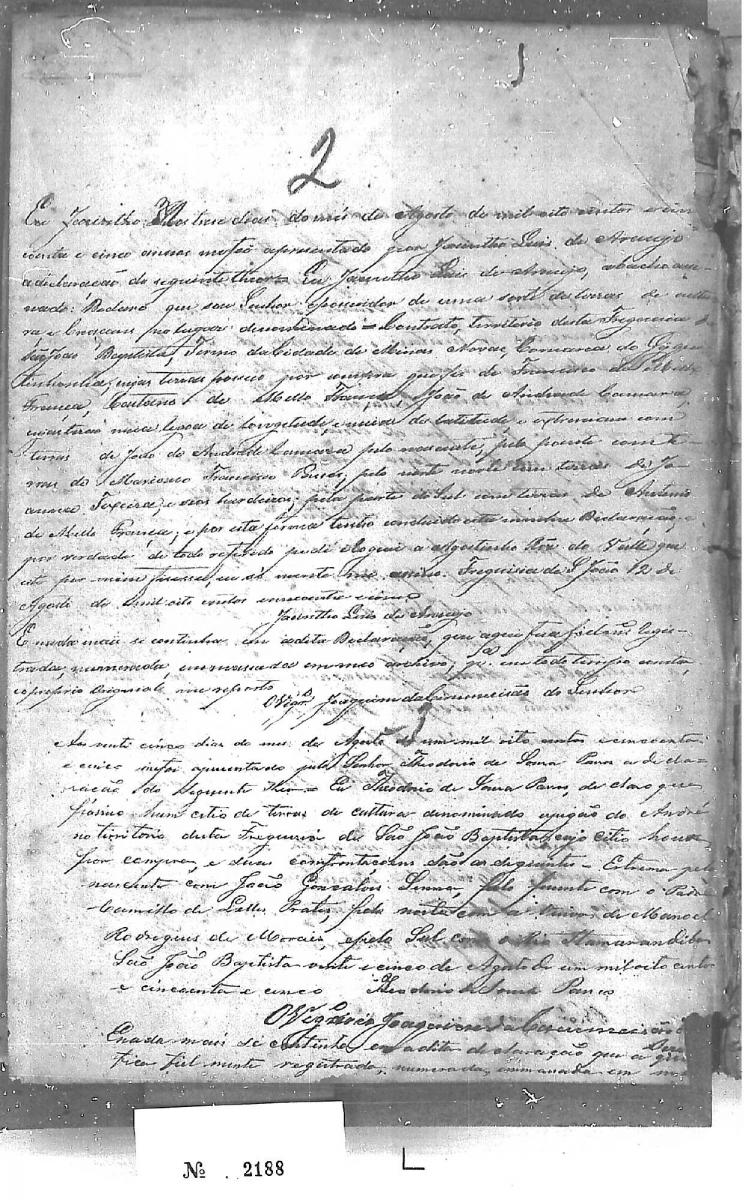 2
Eu Jacintho Aos trese dias do mês de Agosto de mil oito centos e cin
coenta e cinco annos me foi apresentado por Jacintho Luis de Araujo
a declaração do seguinte theor = Eu Jacintho Luis de Araujo, abaicho assig-
nado: Declaro que sou Senhor e possuidor de uma sorte de terras de cultu
ra, e no lugar denominado = Contrato, territorio desta Freguesia de
São João Baptista, Termo da Cidade de Minas Novas, Comarca do Jequi
tinhonha, cujas terras possuo por compra que fiz de Francisco de Mello
Franca, de Mello Franca, João de Andrade Camara,
meia legoa de longitude, e meia de latitude e extremam com
terras de João de Andrade Camara pelo nascente, pelo poente com te-
rras de Francisco pelo norte com terras de Jo
anna Texeira e seos herdeiros; pela parte do Sul com terras de Antonio
de Mello Franca; e por esta forma tenho concluido esta minha Declaração, e
por verdade de todo referido pedi e roguei a Agostinho do Valle que
este por mim fizesse, eu só mente me assino. Freguisia de S. João 12 de
Agosto de mil oito centos cincoenta e cinco
Jacintho Luis de Araujo
E nada mais se continha em adita Declaração, que aqui fica fielme. regis-
trada, numerada, em meo archivo, q. em todo tempo
e o proprio Original me reporto
O Vigr.o Joaquim da Circumcisão do Senhor
3
Aos vinti cinco dias do mes de Agosto de um mil oito centos e cincoenta
e cinco me foi apresentado pelo Senhor Theodorio de Sousa a decla
ração do seguente Theor = Eu Theodorio de Sousa declaro que
possuo hum citio de terras de cultura denominado do André
no territorio desta Freguesia de São João Baptista, cujo citio houve
por compra, e suas comfrontacoens são as seguintes = Estrema pelo
nascente com João Goncalves Senna, pelo puente com o Padre
Camillo de Lellis Prates, pelo norte com a Viuva de Manoel
Rodrigues de Morais, e pelo Sul com o Rio Itamarandiba
São João Baptista vinte e cinco de Agosto de um mil oito cento
e cincoenta e cinco Theodorio de Sousa
O Vigário Joaquim da Circumcisão do
Senhor
E nada mais se continha em a dita declaração que a qui
fica fiel mente registrada, numerada, em
Nº 2188